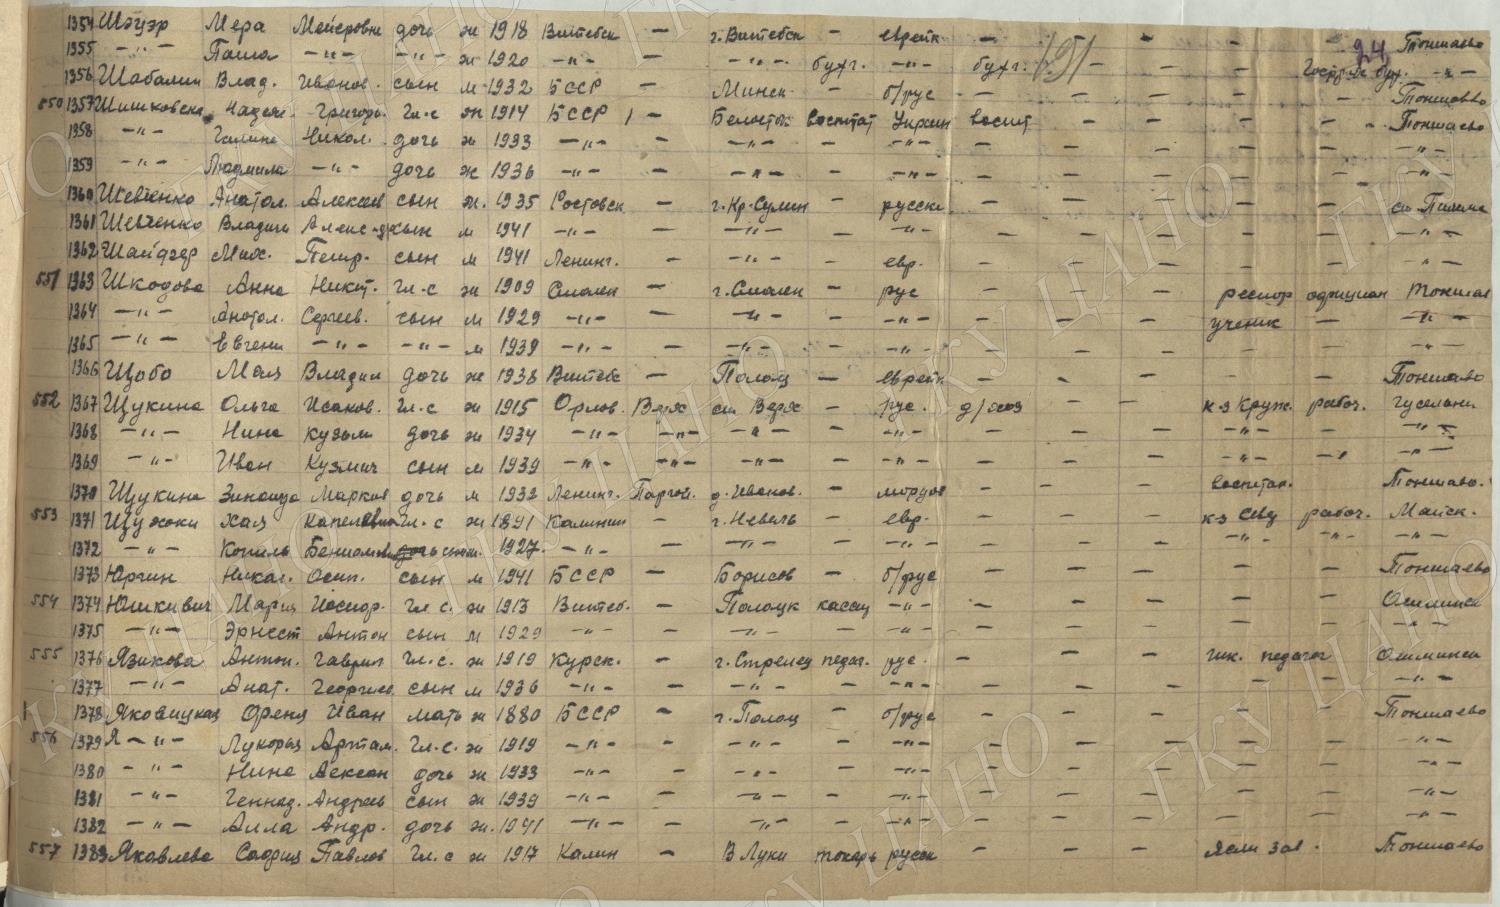 1354 Шэуэр Мера Мейеровна дочь ж 1918 Витебск – г. Витебск – еврейк – – – – – Тоншаево
24
1355 –"– Паша –"– –"– ж 1920 –"– –"– бухг. –"– бухг. – – – бух. –"–
1356 Шабалин Влад. Иванов. сын м 1932 БССР – Минск – б/рус – – – – – Тоншаево
550 1357 Шишковска Надеж. Григорь. Гл-с ж 1914 БССР – Белосток воспитат Украин воспит – – – – Тоншаево
1358 –"– Галина Никол. дочь ж 1933 –"– – –"– – –"– – – – – – –"–
1359 –"– Людмила –"– дочь ж 1936 –"– – –"– – –"– – – – – – –"–
1360 Шевченко Анатол. Алексеев сын ж. 1935 Ростовск – г. Кр-Сулин – русски – – – – – ст. Пижма
1361 Шевченко Владим Алекс-др сын м 1941 –"– – –"– – –"– – – – – – –"–
1362 Шайдзер Мих. Петр. сын м 1941 Ленинг. – –"– – евр. – – – – – –"–
551 1363 Шкодова Анна Никит. Гл-с ж 1909 Смолен – г. Смолен – рус – – – рестор официан Тоншае
1364 –"– Анатол. Сергеев. сын м 1929 –"– – –"– – –"– – – – ученик – –"–
1365 –"– Евгени –"– –"– м 1939 –"– – –"– – –"– – – – – – –"–
1366 Щобо Мая Владим дочь ж 1938 Витебс – Полоц – еврейк – – – – – Тоншаево
552 1367 Щукина Ольга Исаков. Гл-с ж 1915 Орлов. Верх ст. Верх – рус. д/хоз – – к-з Круж. рабоч. Гусельни
1368 –"– Нина Кузьм дочь ж 1934 –"– –"– –"– – –"– – – – –"– – –"–
1369 –"– Иван Кузмич сын м 1939 –"– –"– –"– – –"– – – – –"– –"– –"–
1370 Щукина Зинаида Марков дочь м 1932 Ленинг. Паргол. д. Иванов. – – – – воспитан. Тоншаево.
553 1371 Хая Гл. с ж 1891 Калинин – г. Невель – евр. – – – к-з рабоч. Майск.
1372 –"– Копиль Бениамин сын м. 1927. –"– –"– – –"– – – – –"– –"– –"–
1373 Юргин Никол. Осип. сын м 1941 БССР – Борисов – б/рус – – – – – Тоншаево
554 1374 Юшкивич Мария Иосифор. Гл. с. ж 1913 Витеб. – Полоцк кассир –"– – – – – – Ошминск
1375 –"– Эрнест Антон сын м 1929 –"– – –"– – –"– – – – – – –"–
555 1376 Язикова Антон. Гаврил Гл. с. ж 1919 Курск. – г. Стрелец педаг. рус. – – – шк. педагог Ошминск
1377 –"– Анат. Георгиев сын м 1936 –"– – –"– – –"– – – – – – –"–
1378 Яковицкая Френя Иван мать ж 1880 БССР – г. Полоц – б/рус – – – – – Тоншаево
556 1379 Я –"– Лукерья Артам. Гл. с. ж 1919 –"– – –"– – –"– – – – – – –"–
1380 –"– Нина Алексан дочь ж 1933 –"– – –"– – –"– – – – – – –"–
1381 –"– Геннад. Андреев сын ж 1939 –"– – –"– – –"– – – – – – –"–
1382 –"– Алла Андр. дочь ж. 1941 –"– – –"– – –"– – – – – – –"–
557 1383 Яковлева София Павлов Гл. с ж 1917 Калин – В Луки токарь русск – – – Ясли зав. Тоншаево
ГКУ ЦАНО